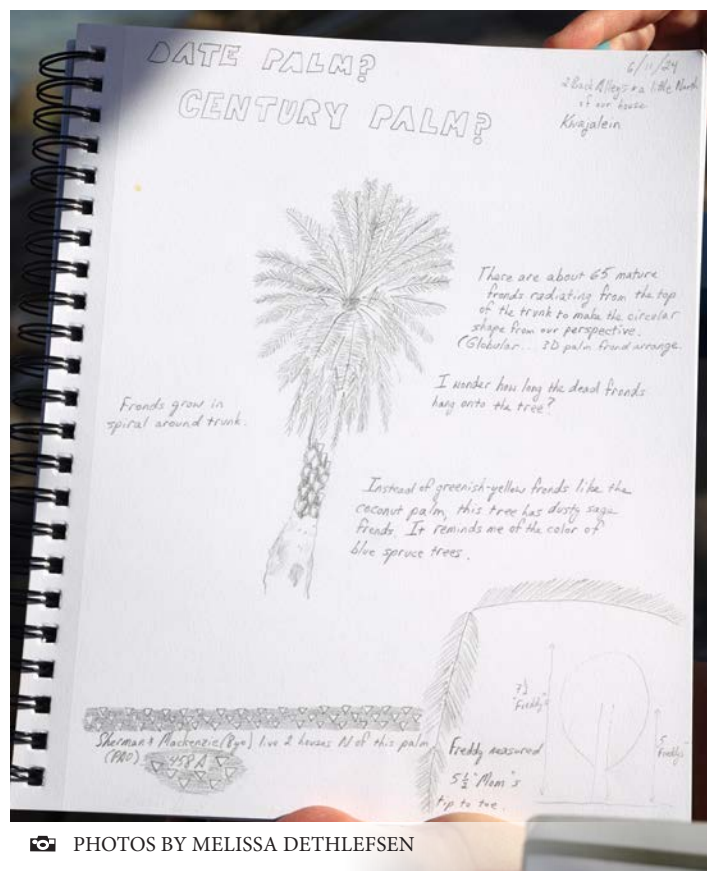 DATE PALM?
CENTURY PALM?
6/11/24
2 Back Alleys + a little North
of our house
Kwajalein
There are about 65 mature
fronds radiating from the top
of the trunk to make the circular
shape from our perspective.
(Globular... 3D palm frond arrange.
I wonder how long the dead fronds
hang onto the tree?
Fronds grow in
spiral around trunk.
Instead of greenish-yellow fronds like the
coconut palm, this tree has dusty sage
fronds. It reminds me of the color of
blue spruce trees.
Sherman + Mackenzie (8yo) live 2 houses N of this palm
458 A
"Freddy"s
5
"Freddy"s
Freddy measured
5 1/2 "Mom"s
tip to toe.
PHOTOS BY MELISSA DETHLEFSEN